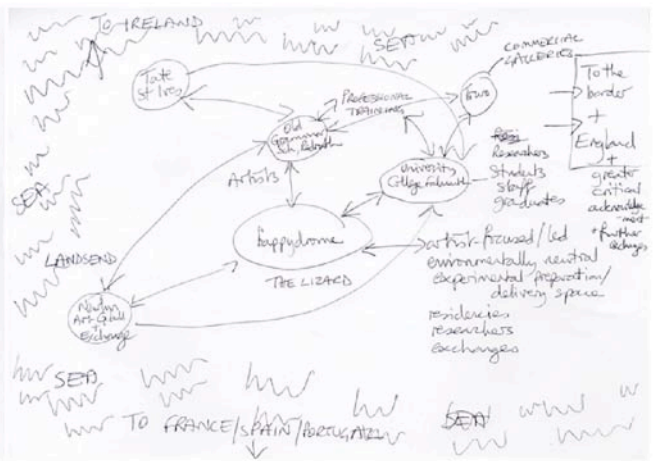 TO IRELAND
SEA
COMMERCIAL
GALLERIES
Tate
St Ives
Two
PROFESSIONAL
TRAINING
Old
Grammar
Sch, Redruth
To the
border
+
England
+
greater
critical
acknowledge
-ment
+ further
exchanges
University
College Falmouth
Researchers
Students
staff
graduates
Artists
SEA
LANDSEND
happydrome
THE LIZARD
artist-focused/led
environmentally neutral
experimental preparation/
delivery space
residencies
researchers
exchanges
Newlyn
Art Gall
+
Exchange
SEA
SEA
TO FRANCE/SPAIN/PORTUGAL